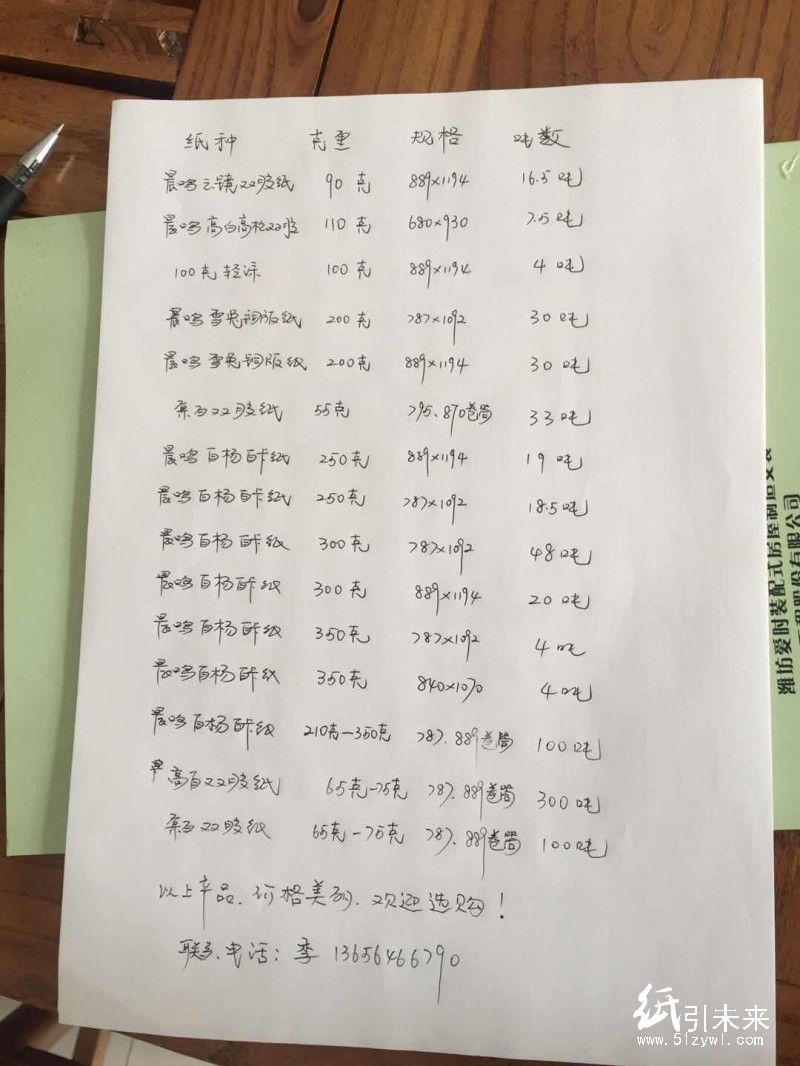 纸种 克重 规格 吨数
晨鸣云镜双胶纸 90克 889×1194 16.5吨
晨鸣高白高松双胶 110克 680×930 7.5吨
100克轻涂 100克 889×1194 4吨
晨鸣雪兔铜版纸 200克 787×1092 30吨
晨鸣雪兔铜版纸 200克 889×1194 30吨
双胶纸 55克 795、870卷筒 33吨
晨鸣白杨白卡纸 250克 889×1194 19吨
晨鸣白杨白卡纸 250克 787×1092 18.5吨
晨鸣白杨白卡纸 300克 787×1092 48吨
晨鸣白杨白卡纸 300克 889×1194 20吨
晨鸣白杨白卡纸 350克 787×1092 4吨
晨鸣白杨白卡纸 350克 840×1070 4吨
晨鸣白杨白卡纸 210克-350克 787、889卷筒 100吨
高白双胶纸 65克-75克 787、889卷筒 300吨
双胶纸 65克-75克 787、889卷筒 100吨
以上产品、价格美丽、欢迎选购!
联系电话:李 13656466790
潍坊爱时装配式房屋制造
工程股份有限公司
纸引未来
www.51zywl.com